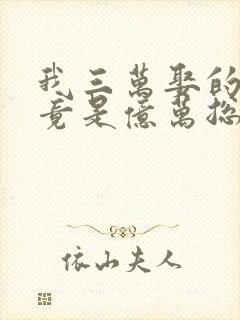 我三萬娶的
竟是億萬總
依山夫人